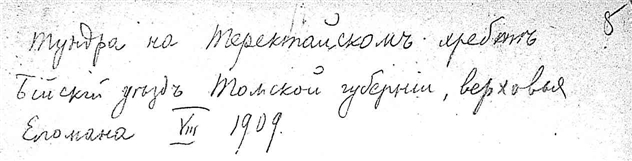 Тундра на Теректайскомъ хребтѣ 8
Бійскій уѣздъ Томской губерніи, верховья
Еломана VIII 1909.